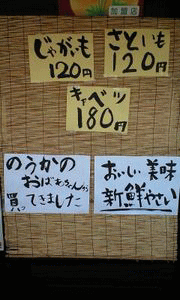 加盟店
じゃがいも
120円
さといも
120円
キャベツ
180円
のうかの
おばあちゃんから
買って
きました
おいしい 美味
新鮮やさい